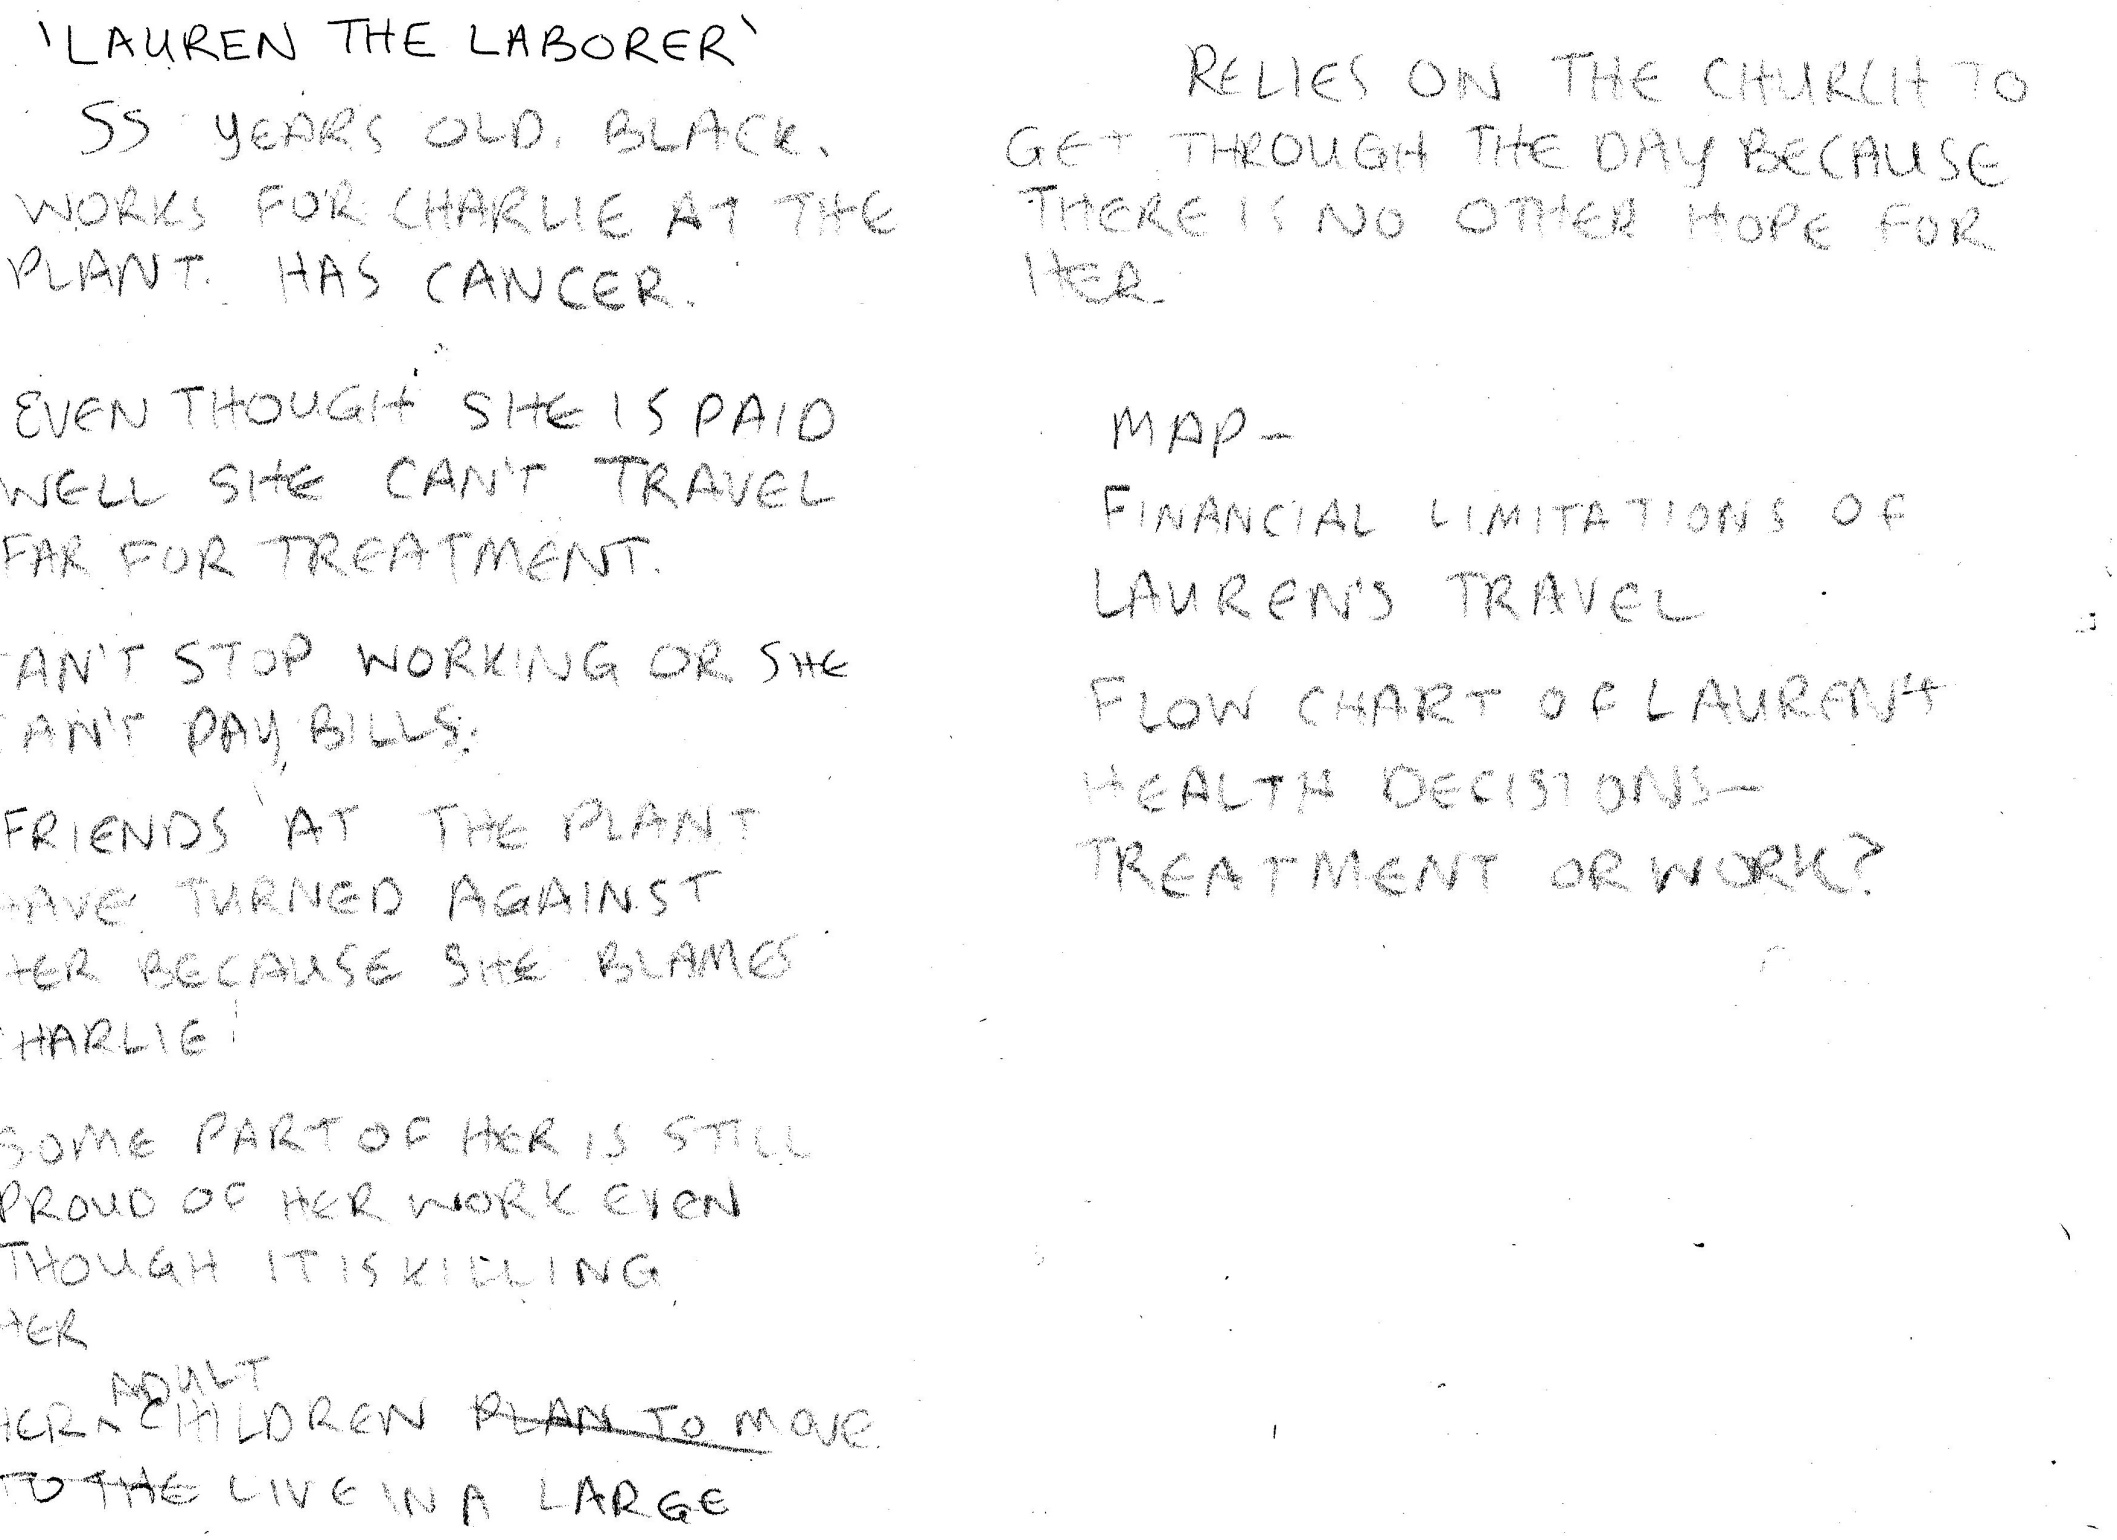 'LAUREN THE LABORER'
55 YEARS OLD. BLACK.
WORKS FOR CHARLIE AT THE
PLANT. HAS CANCER.
EVEN THOUGH SHE IS PAID
WELL SHE CAN'T TRAVEL
FAR FOR TREATMENT.
CAN'T STOP WORKING OR SHE
CAN'T PAY BILLS.
FRIENDS AT THE PLANT
HAVE TURNED AGAINST
HER BECAUSE SHE BLAMES
CHARLIE
SOME PART OF HER IS STILL
PROUD OF HER WORK EVEN
THOUGH IT IS KILLING
HER
ADULT
HER CHILDREN PLAN TO MOVE
TO THE LIVE IN A LARGE
RELIES ON THE CHURCH TO
GET THROUGH THE DAY BECAUSE
THERE IS NO OTHER HOPE FOR
HER.
MAP-
FINANCIAL LIMITATIONS OF
LAUREN'S TRAVEL
FLOW CHART OF LAUREN'S
HEALTH DECISIONS-
TREATMENT OR WORK?